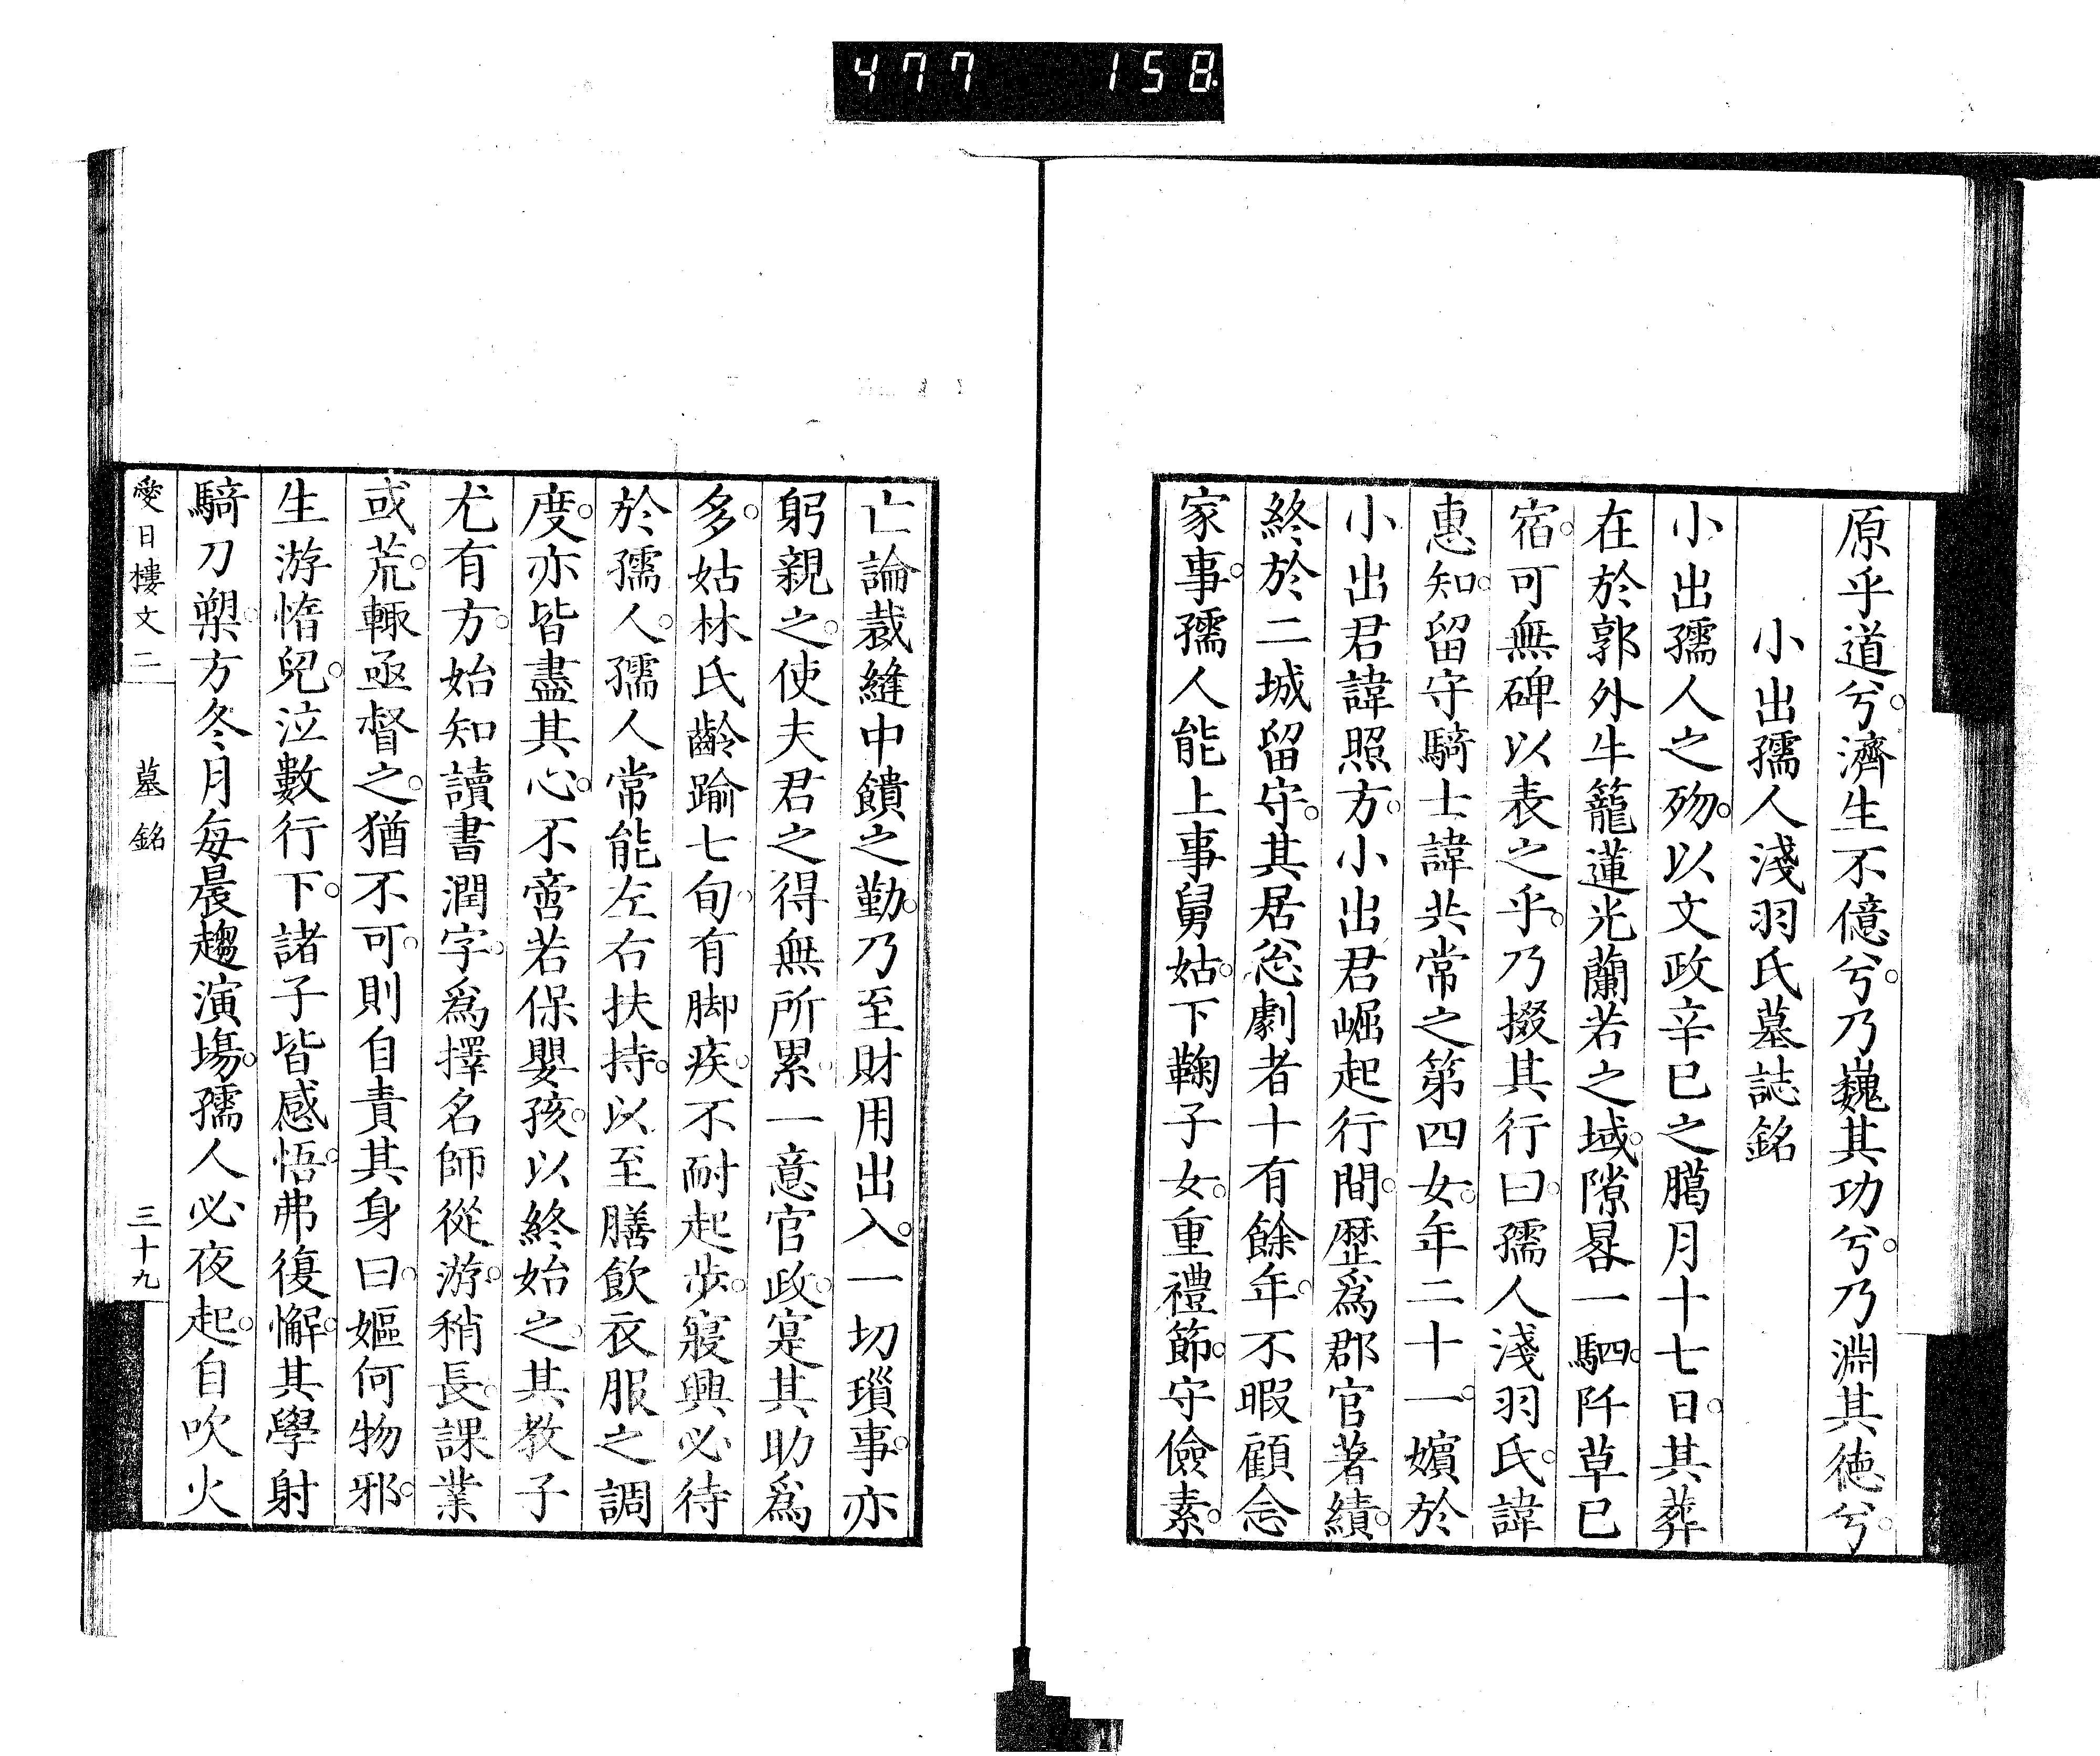 477 158
原乎道兮。濟生不億兮。乃巍其功兮。乃淵其徳兮。
小出孺人淺羽氏墓誌銘
小出孺人之歾。以文政辛巳之臈月十七日。其葬
在於郭外牛籠蓮光蘭若之域。隙晷一駟。阡草已
宿。可無碑以表之乎。乃掇其行曰。孺人淺羽氏。諱
惠知。留守騎士諱共常之第四女。年二十一。嬪於
小出君諱照方。小出君崛起行間。歴爲郡官著績。
終於二城留守。其居忩劇者十有餘年。不暇顧念
家事。孺人能上事舅姑。下鞠子女。重禮節。守儉素。
亡論裁縫中饋之勤。乃至財用出入。一切瑣事。亦
躬親之。使夫君之得無所累。一意官政。寔其助爲
多。姑林氏齡踰七旬。有脚疾。不耐起步。寢興必待
於孺人。孺人常能左右扶持。以至膳飲衣服之調
度。亦皆盡其心。不啻若保嬰孩。以終始之。其教子
尤有方。始知讀書潤字。爲擇名師從游。稍長。課業
或荒。輙亟督之。猶不可。則自責其身曰。嫗何物邪。
生游惰兒。泣數行下。諸子皆感悟。弗復懈。其學射
騎刀槊。方冬月每晨趨演場。孺人必夜起。自吹火
愛日樓文二 墓銘 三十九